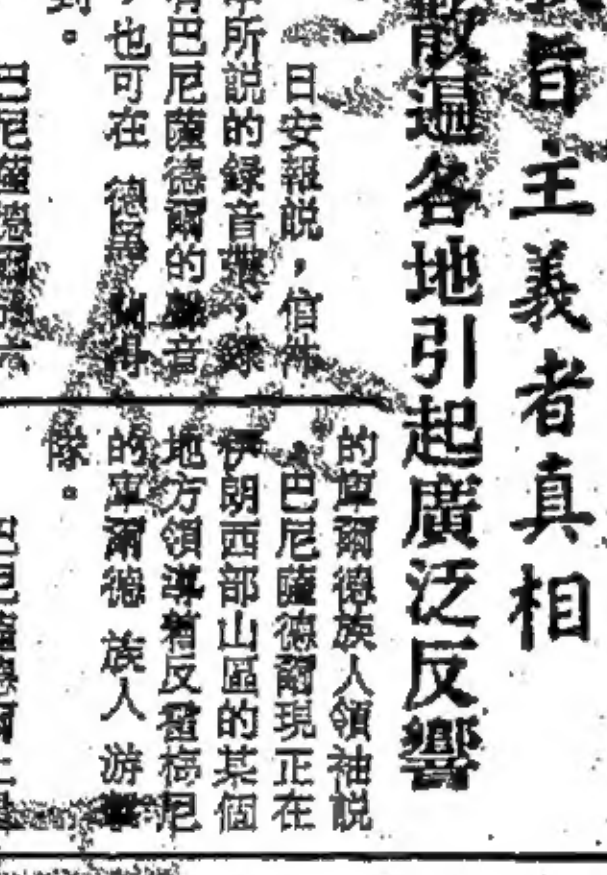 旨主義者真相
散遍各地引起廣泛反響
日安報説，信件
所説的録音帶，録
巴尼薩德爾的聲音
也可在 德黑
到。
巴尼薩德爾
的庫爾德族人領袖説
，巴尼薩德爾現正在
伊朗西部山區的某個
地方領導着反霍梅尼
的庫爾德 族人 游擊
隊。
巴尼薩德爾上